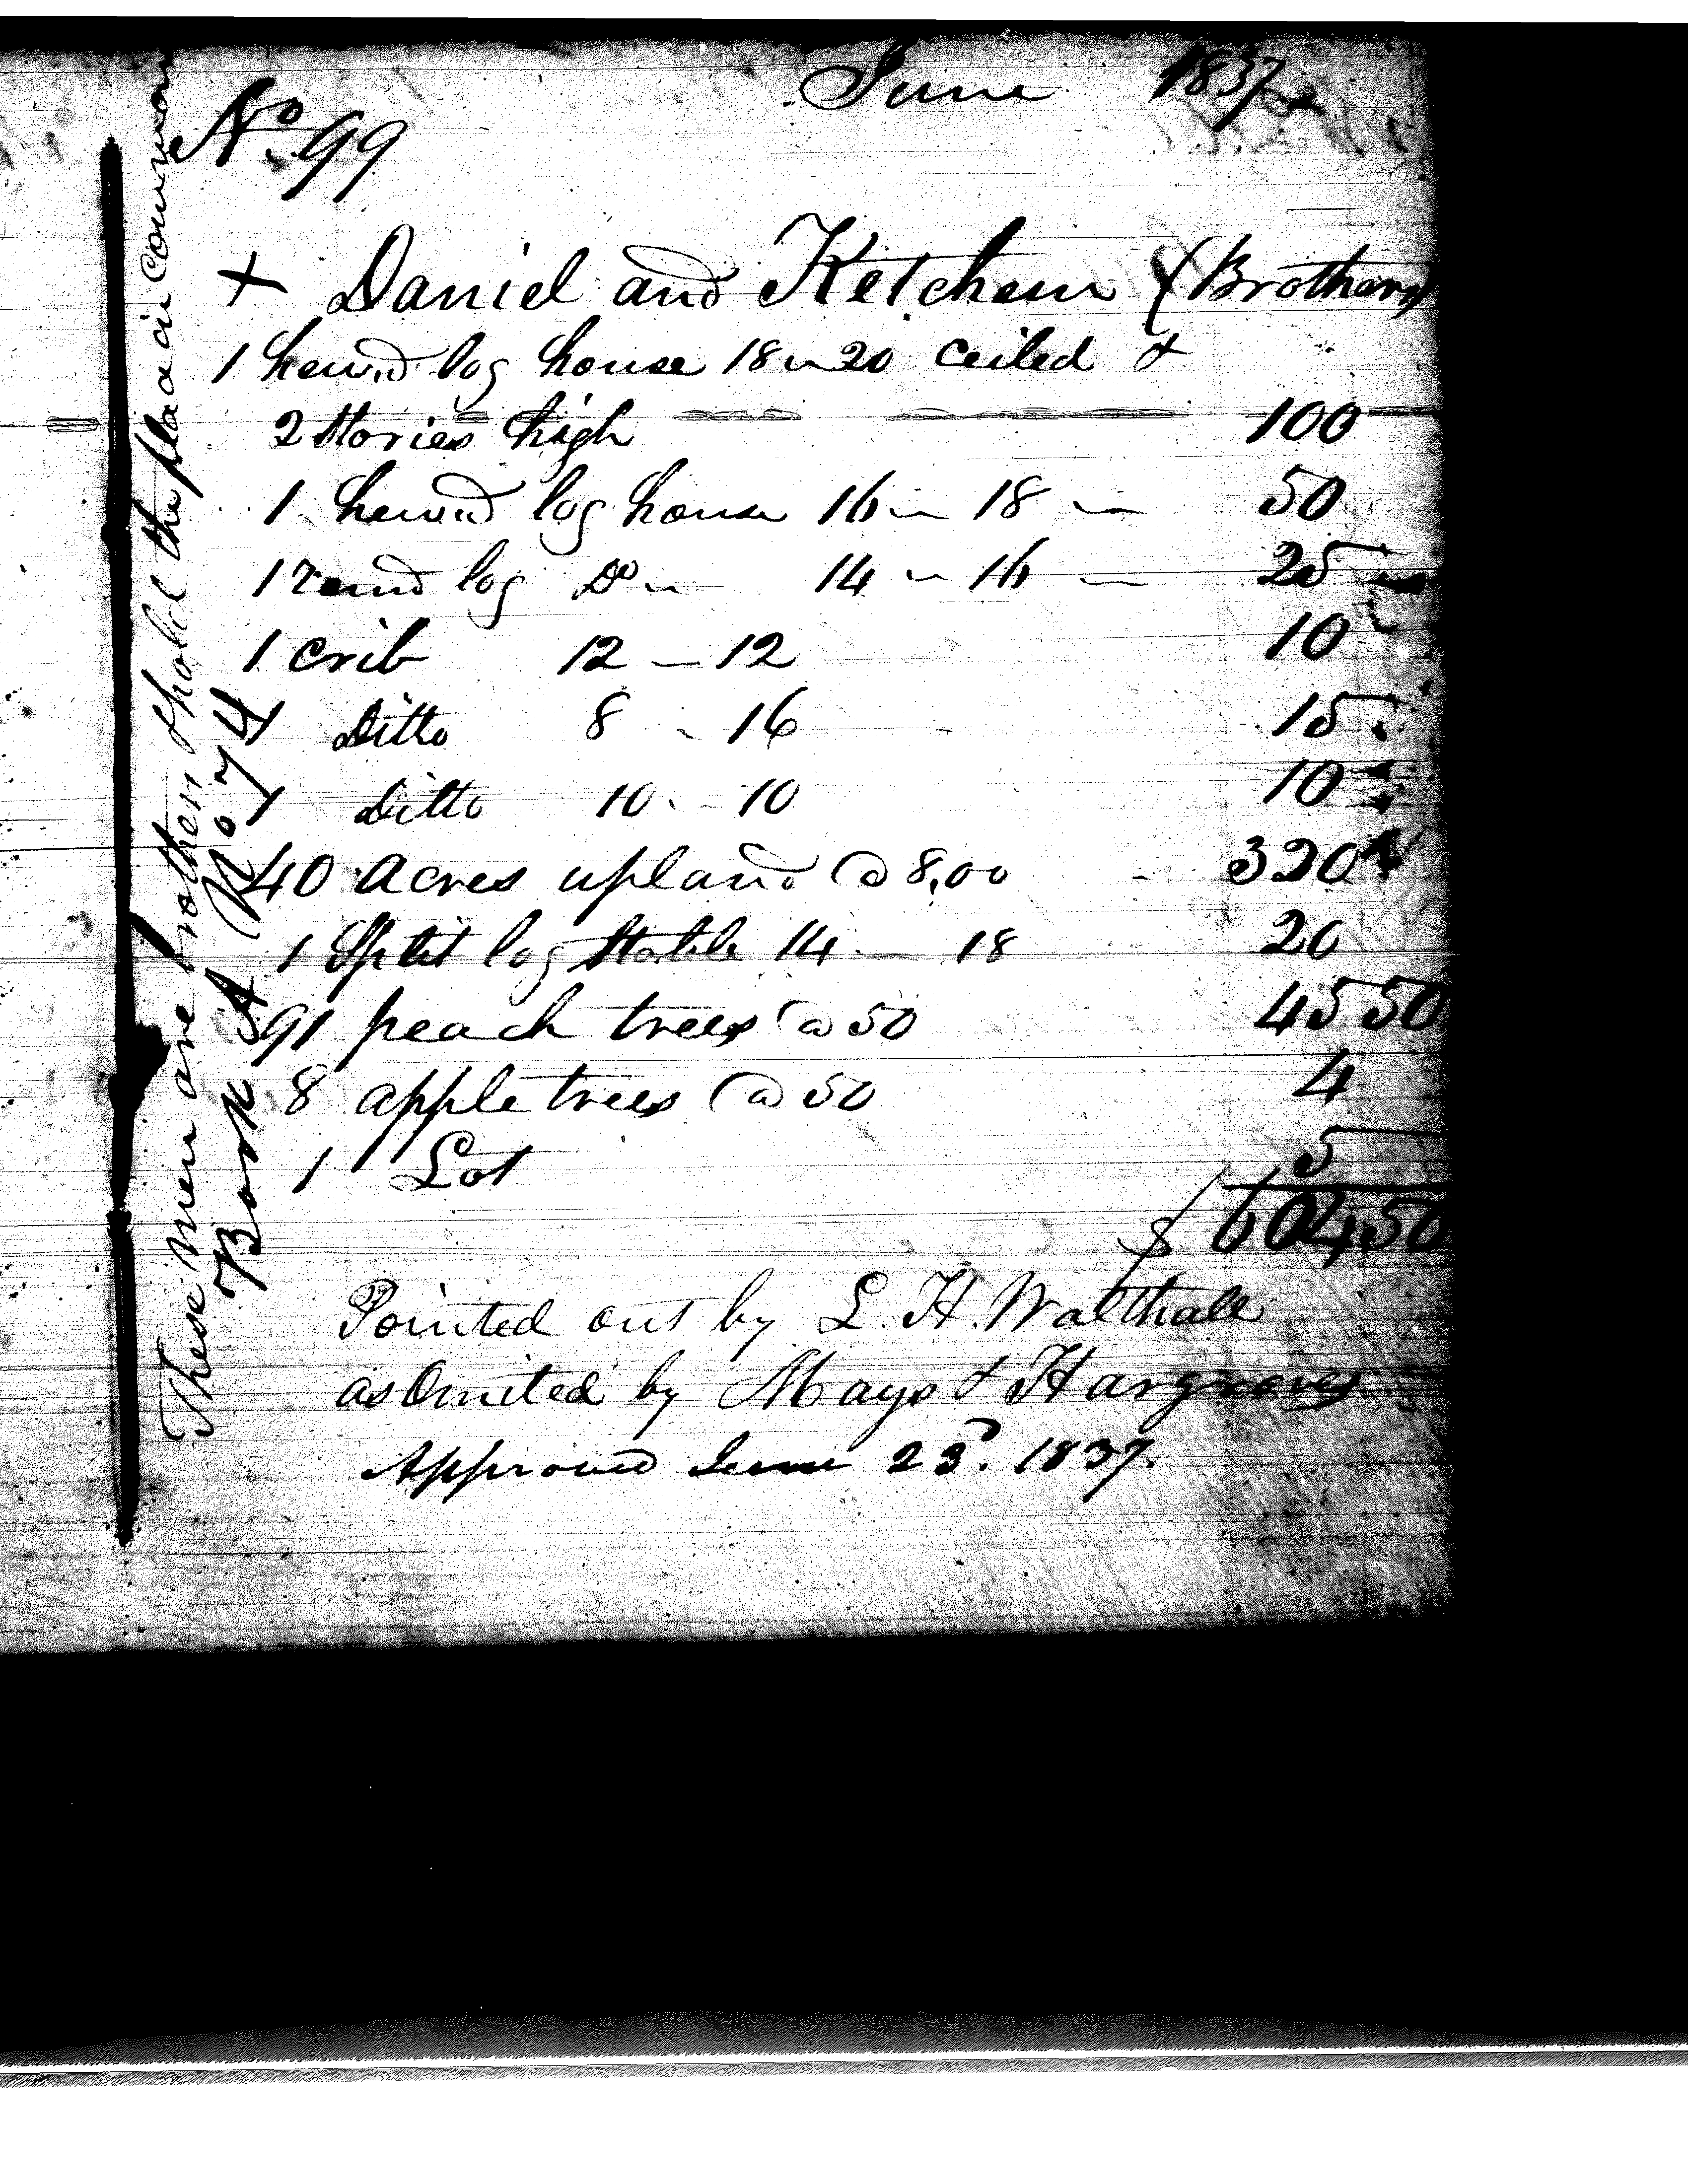 June 1837
No. 99
+ Daniel and Ketchem (Brothers)
1 hewd log house 18 - 20 ceiled &
2 Stories high 100
1 hewd log house 16 - 18 - 50
1 round log Do - 14 - 16 - 25
1 crib 12 - 12 10
1 Ditto 8 - 16 15
1 Ditto 10 - 10 10
40 acres upland @ 8,00 320
1 Split log Stable 14 - 18 20
91 peach trees @ 50 45 50
8 apple trees @ 50 4
1 Lot 5
$ 604 50
Pointed out by L. H. Walthall
as Omited by Mays & Hargroves
Approved June 23d. 1837.
These men are brothers & hold the place in common
Book A No 74